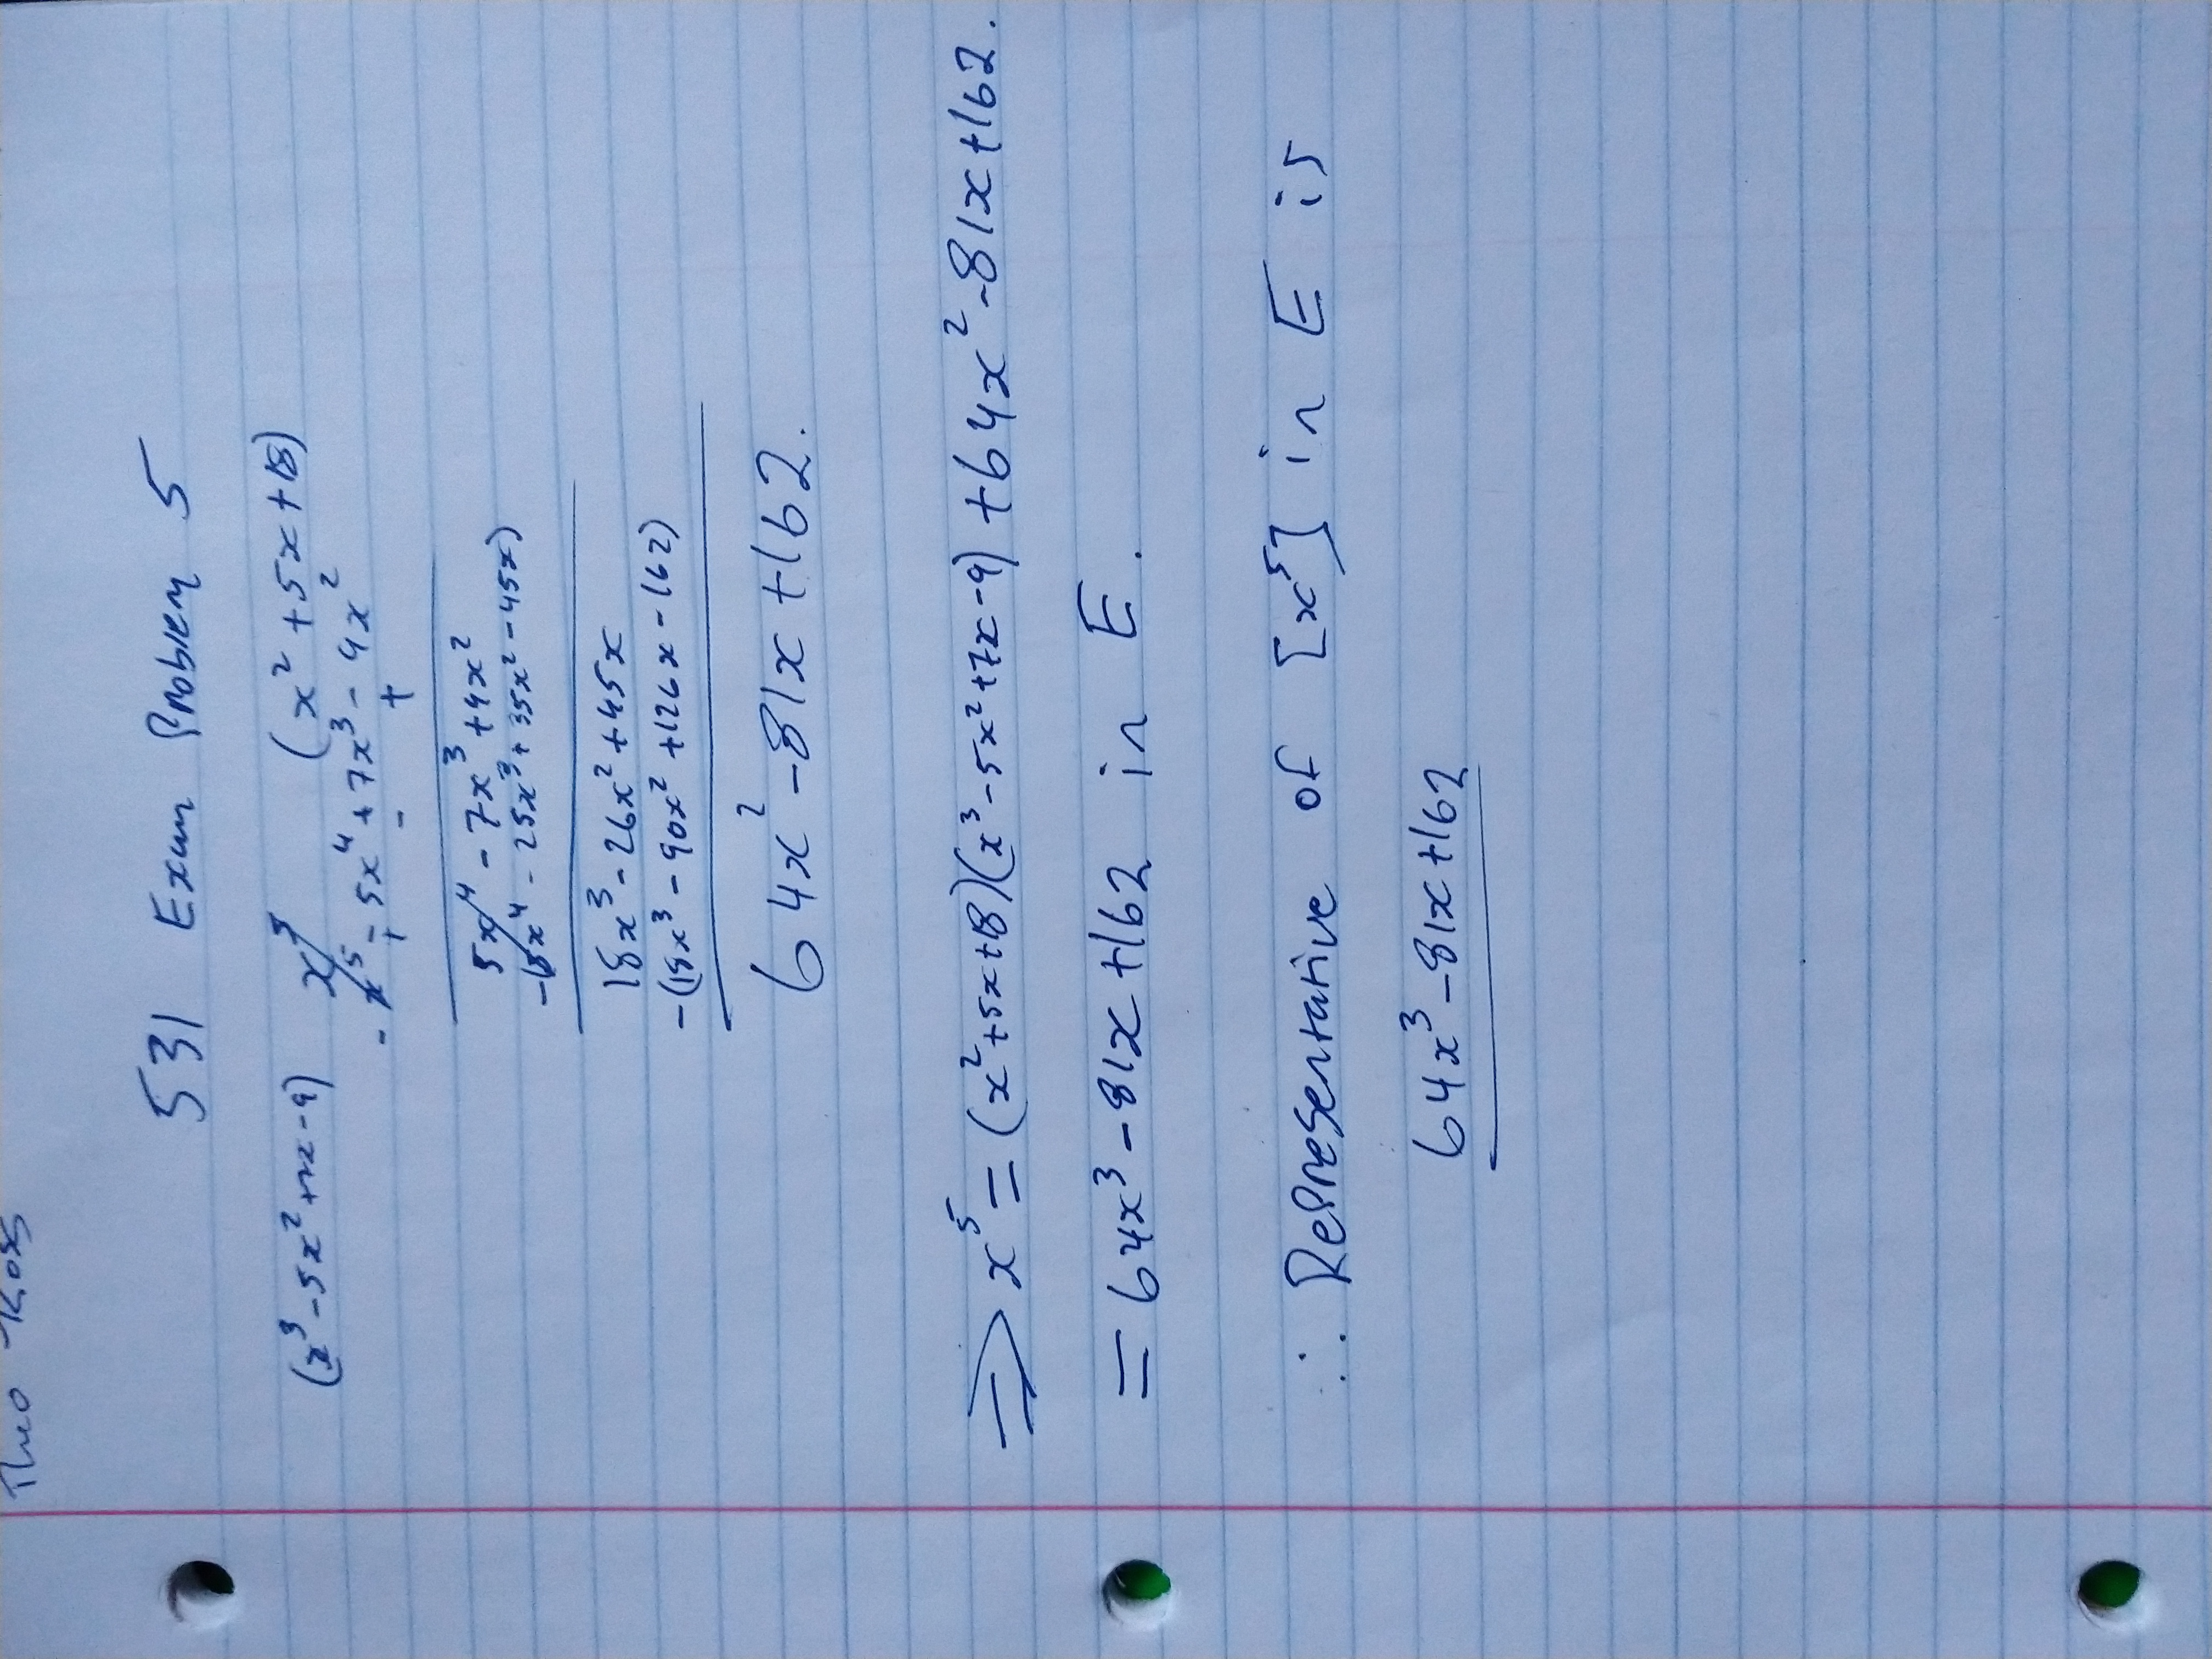 531 Exam Problem 5
(x³-5x²+7x-9) x⁵ (x²+5x+18)
- x⁵ - 5x⁴ + 7x³ - 4x²
+ - +
5x⁴ - 7x³ + 4x²
-(5x⁴ - 25x³ + 35x² - 45x)
18x³ - 26x² + 45x
-(18x³ - 90x² + 126x - 162)
64x² - 81x + 162.
⟹ x⁵ = (x²+5x+18)(x³-5x²+7x-9) + 64x² - 81x + 162.
= 64x³ - 81x + 162 in E.
∴ Representative of [x⁵] in E is
64x³ - 81x + 162